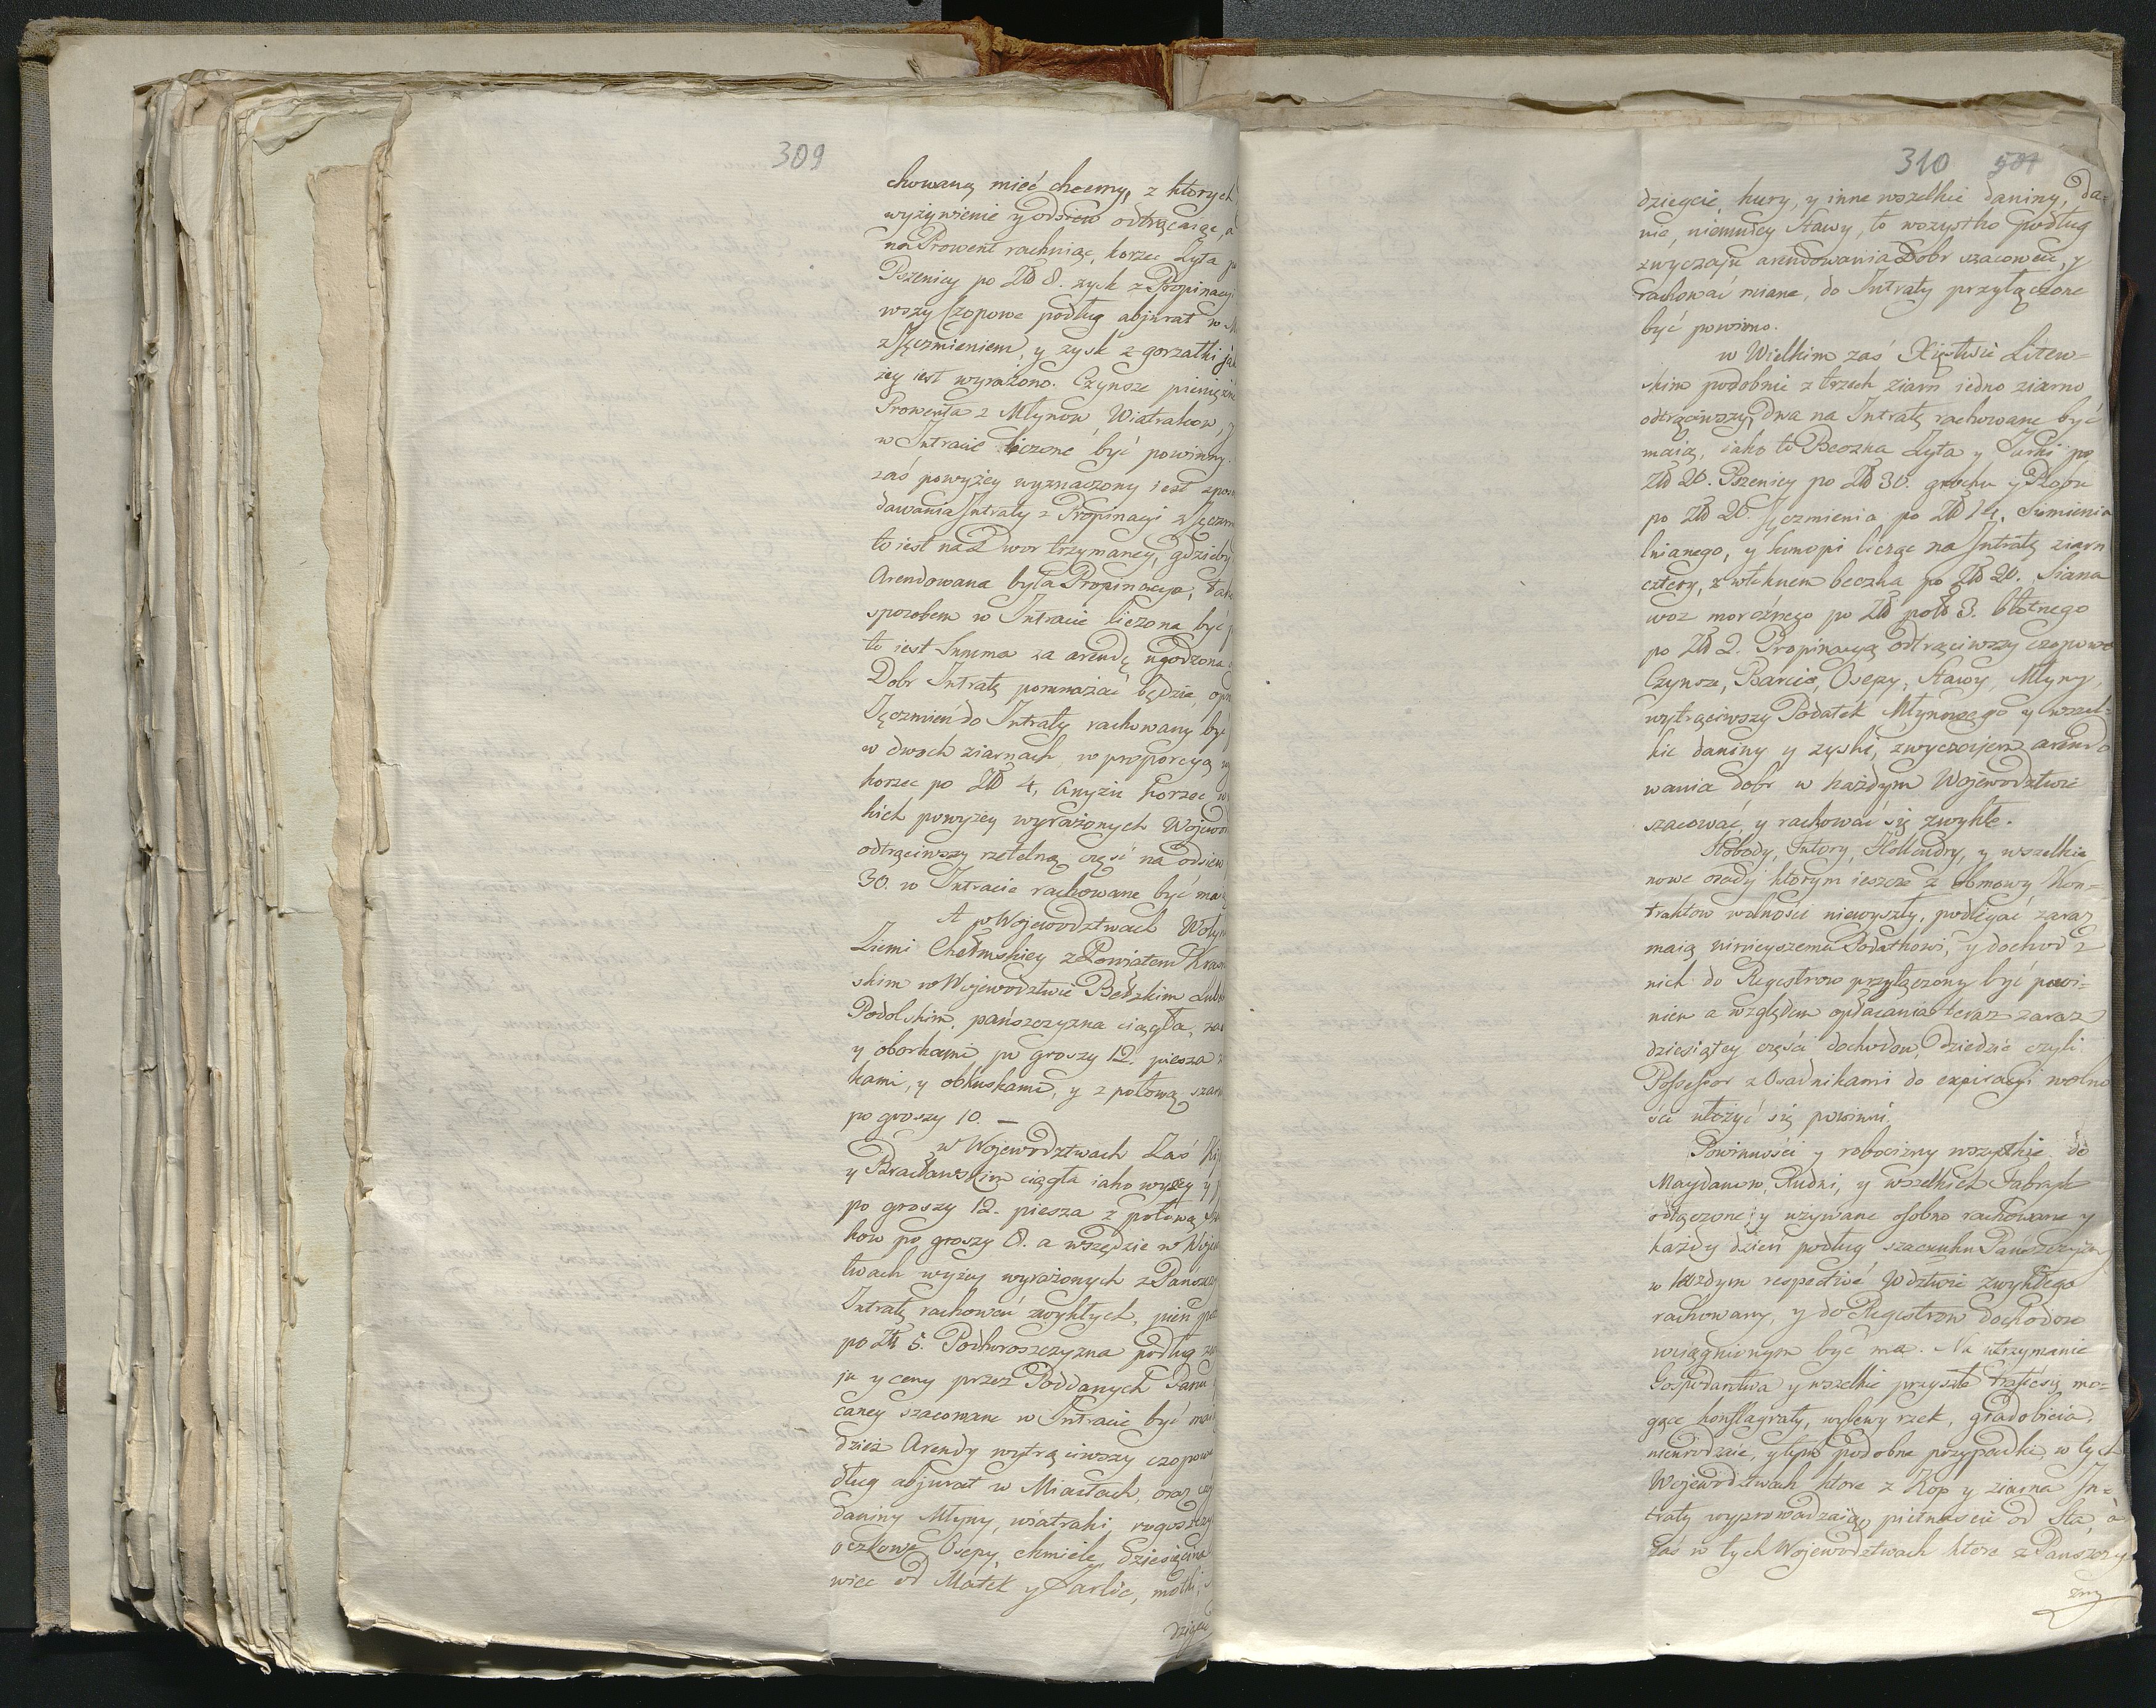 309
chowaną mieć chcemy, z ktorych
wyżywienie y odsiew odtrącaiąc, a
na Prowent rachuiąc, korzec Żyta
Pszenicy po Złł 8. zysk z Propinacyi
wszy Czopowe podług abjurat w
z Jęczmieniem, y zysk z gorzałki
żey iest wyrażono. Czynsze pieniężne
Prowenta z Młynow, Wiatrakow,
w Intracie liczone być powinny.
zaś powyżey wyznaczony iest
dawania Intraty z Propinacyi z
to iest na Dwor trzymaney, gdzieby
Arendowana była Propinacya,
sposobem w Intracie liczona być
to iest Summa za arendę ugodzona
Dobr Intratę pomnażać będzie,
Jęczmień do Intraty rachowany być
w dwoch ziarnach, w proporcyą
korzec po Złł 4, Anyżu korzec
kich powyżey wyrażonych
odtrąciwszy rzetelną część na odsiew
30. w Intracie rachowane być
A w Woiewodztwach
Ziemi Chełmskiey z Powiatem
skim w Woiewodztwie Bełzkim
Podolskim, pańszczyzna ciągła,
y oborkami, po groszy 12. piesza
kami, y obłuskami, y z połową
po groszy 10. —
w Woiewodztwach Zaś
y Bracławskim ciągła iako wyżey y
po groszy 12. piesza z połową
kow po groszy 8. a wszędzie w
twach wyżey wyrażonych z
Intratę rachować zwykłych, pień
po Złł 5. Podkuroszczyzna podług
ju y ceny przez Poddanych Panu
caney szacowane w Intracie być
dzież Arendy wytrąciwszy czopowe
dług abjurat w Miastach, oraz
daniny Młyny, wiatraki,
oczkowe Osepy, chmiele, dziesięcina
wiec od Matek y Jarlic, motki,
dzięgcie
310 587
dziegcie, kury, y inne wszelkie daniny, da-
nie, niemniey Stawy, to wszystko podług
zwyczaju arendowania Dobr szacować, y
rachować miane, do Intraty przyłączone
być powinno.
w Wielkim zaś Xięstwie Litew-
skim podobnie z trzech ziarn iedno ziarno
odtrąciwszy, dwa na Intratę rachowane być
maią, iako to Beczka Żyta y Jarki po
Złł 20. Pszenicy po Złł 30. grochu y Bobu
po Złł 20. Jęczmienia po Złł 14. Siemienia
lnianego, y konopi licząc na Intratę ziarn
cztery, z włoknem beczka po Złł 20. Siana
woz morożnego po Złł poł 3. błotnego
po Złł 2. Propinacyą odtrąciwszy czopowe
Czynsze, Barcie, Osepy, Stawy, Młyny,
wytrąciwszy Podatek Młynowego y wszel-
kie daniny y zyski, zwyczajem arendo
wania dobr w każdym Woiewodztwie
szacować, y rachować się zwykłe.
Słobody, Futory, Hollendry, y wszelkie
nowe osady ktorym ieszcze z obmowy Kon-
traktow wolności niewyszły, podlegać zaraz
maią ninieyszemu Podatkowi, y dochod z
nich do Regestrow przyłączony być powi-
nien a względem opłacania teraz zaraz
dziesiątey części dochodow, Dziedzic czyli
Possessor z Osadnikami do expiracyi wolno
ści ułożyć się powinni.
Powinności y robocizny wszystkie do
Maydanow, Rudni, y wszelkich Fabryk
odłączone, y używane osobno rachowane y
każdy dzień podług szacunku Pańszczyzny
w każdym respective Wdztwie zwykłego
rachowany, y do Regestrow dochodow
wciągnionym być ma. Na utrzymanie
Gospodarstwa y wszelkie przyszłe trafić się mo-
gące konflagraty, wylewy rzek, gradobicia,
nieurodzaie, y tym podobne przypadki, w tych
Woiewodztwach ktore z Kop y ziarna In-
traty wyprowadzaią, pietnaście od Sta, a
zaś w tych Woiewodztwach ktore z Pańszczy
zny